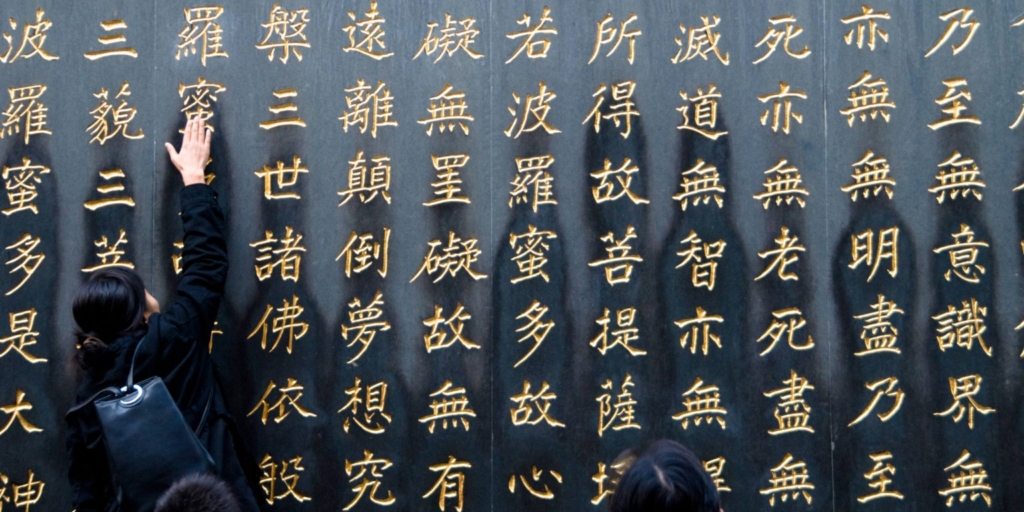 乃至無意識界無
亦無無明盡乃至
死亦無老死盡無
滅道無智亦無得
所得故菩提薩
若波羅蜜多故心
礙無罣礙故無有
遠離顛倒夢想究
槃三世諸佛依般
羅蜜
三藐三菩
波羅蜜多是大神